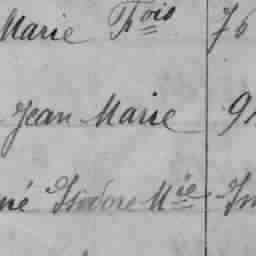 Marie Fçois 76
Jean Marie 91
né Isidore Mie